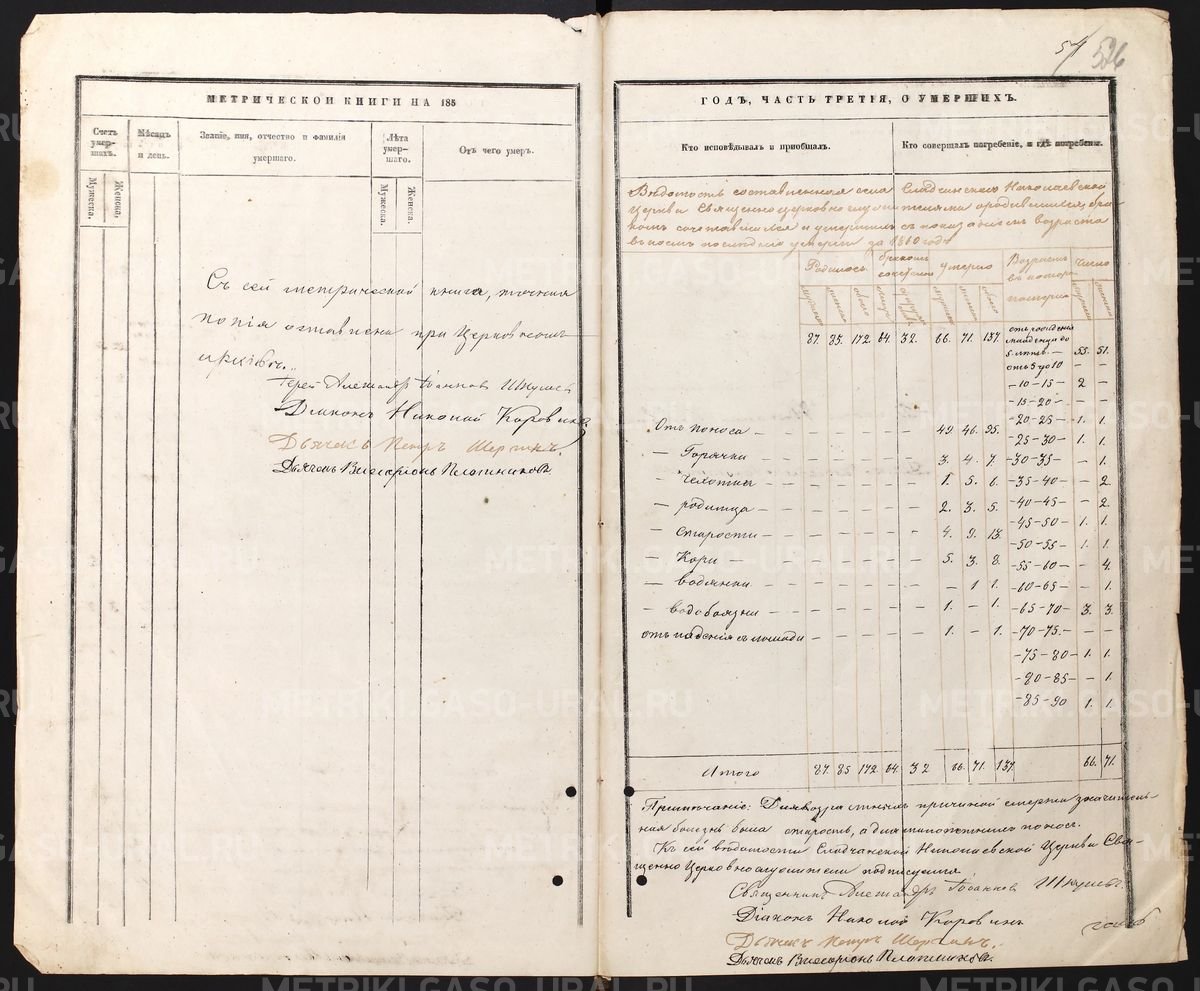 54
526
МЕТРИЧЕСКОЙ КНИГИ НА 185
Счетъ умер-шихъ.
Мѣсяцъ и день.
Званіе, имя, отчество и фамилія умершаго.
Лѣта умер-шаго.
Отъ чего умеръ.
Мужеска.
Женска.
Мужеска.
Женска.
Съ сей метрической книги, точная
копія оставлена при Церковномъ
архивѣ.
Іерей Александръ Іоанновъ
Діаконъ Николай Коровинъ
Дьячекъ Петръ
Дьячекъ Виссаріонъ Плотниковъ.
ГОДЪ, ЧАСТЬ ТРЕТІЯ, О УМЕРШИХЪ.
Кто исповѣдывалъ и пріобщалъ.
Кто совершалъ погребеніе, и гдѣ погребены.
Вѣдомость составленная села Сладчанской Николаевской
Церкви Священноцерковнослужителями о родившихся, бра-
комъ сочетавшихся и умершихъ съ показаніемъ возраста
въ коемъ послѣдніе умерли за 1860 годъ
Родилось.
бракомъ сочеталось
Умерло
Возрастъ въ котор. померли
Число
мужеска
женска
обоего
мужеска
женска
обоего
мужеска
женска
87. 85. 172. 64. 32. 66. 71. 137.
отъ рожденія младенцы до
5 лѣтъ — 55. 51.
отъ 5 до 10 — —
— 10 — 15 — 2 —
— 15 — 20 — — —
— 20 — 25 — 1. 1.
— 25 — 30 — 1. 1.
— 30 — 35 — — 1.
— 35 — 40 — — 2.
— 40 — 45 — — 2.
— 45 — 50 — 1. 1.
— 50 — 55 — 1. 1.
— 55 — 60 — — 4.
— 60 — 65 — — 1.
— 65 — 70 — 3. 3.
— 70 — 75. — — —
— 75 — 80 — 1. 1.
— 80 — 85 — — 1.
— 85 — 90 1. 1.
Отъ поноса — — — — — — 49. 46. 95.
— Горячки — — — — — — 3. 4. 7.
— Чехотки — — — — — — 1. 5. 6.
— родимца — — — — — — 2. 3. 5.
— Старости — — — — — — 4. 9. 13.
— Кори — — — — — — 5. 3. 8.
— водянки — — — — — — — 1 1.
— водобоязни — — — — — — 1. — 1.
отъ паденія съ лошади — — — — — 1. — 1.
Итого 87. 85 172. 64. 32 66. 71. 137. 66. 71.
Примѣчаніе: Для возрастныхъ причиной смерти значитель-
ная болезнь была старость, а для малолѣтнихъ поносъ.
Къ сей вѣдомости Сладчанской Николаевской Церкви Свя-
щенно Церковнослужители подписуемся
Священникъ Александръ Іоанновъ
Діаконъ Николай Коровинъ
Дьячекъ Петръ
Дьячекъ Виссаріонъ Плотниковъ.
METRIKI.GASO-URAL.RU